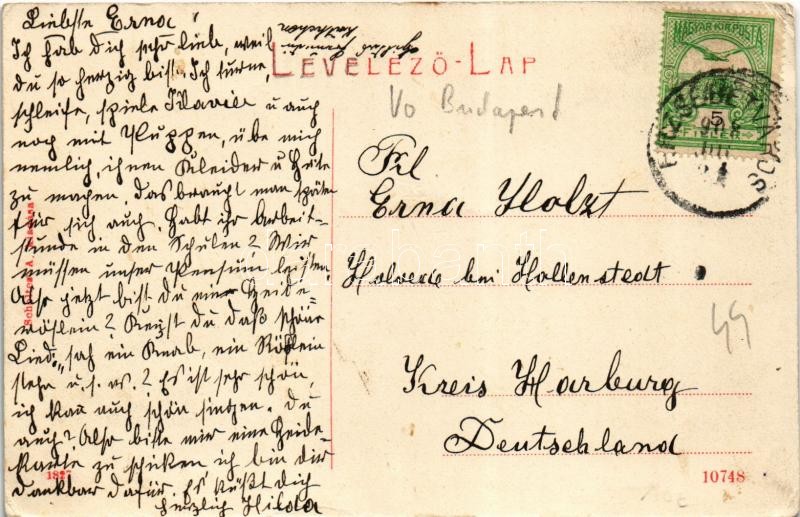 Liebste Erna
Ich hab dich sehr lieb, weil
du so herzig bist. Ich turne,
schleife, spiele Klavier u auch
noch mit Puppen, übe mich
nemlich, ihnen Kleider u Hüte
zu machen, das braucht man später
für sich auch. Habt ihr Arbeit-
stunde in den Schulen? Wir
müssen unser Pensum leisten.
Also jetzt bist du eine Heide-
röslein? Kenst du daß schöne
Lied: „sah ein Knab, ein Röslein
stehn u. s. w.? Es ist sehr schön,
ich kan auch schön singen. Du
auch? Also bitte mir eine Heide-
Karte zu schiken ich bin dir
dankbar dafür. Es küßt dich
herzlich Hilda
LEVELEZŐ-LAP
V. Budapest
MAGYAR KIR. POSTA
5
FILLÉR
ERZSÉBETVÁROS
Frl
Erna Holzt
Holvede bei Hollenstedt
Kreis Harburg
Deutschland
49
1827
10748